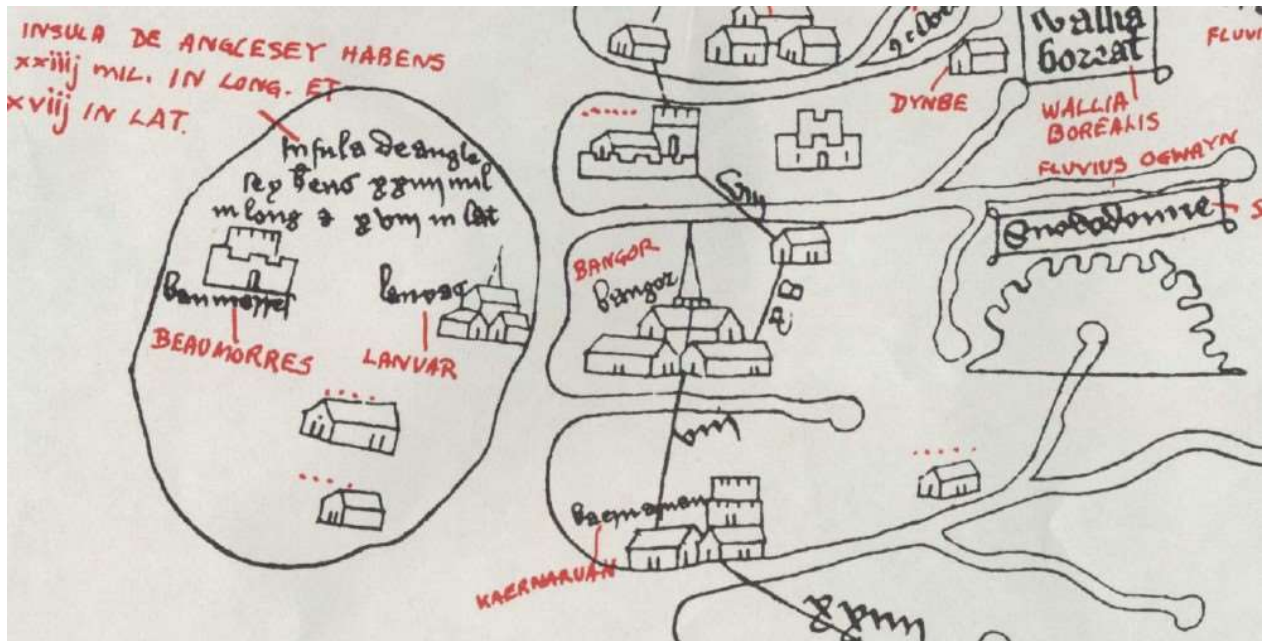 INSULA DE ANGLESEY HABENS
xxiiij MIL. IN LONG. ET
xviij IN LAT.
Insula de angle
sey hens xxiiij mil
in long & xviij in lat
beaumorres
BEAUMORRES
lanvar
LANVAR
DYNBE
Wallia
boreal
WALLIA
BOREALIS
FLUVI
FLUVIUS OGWAYN
Snowdonne
S
BANGOR
bangor
viij
kaernarvan
KAERNARVAN
xxiiij